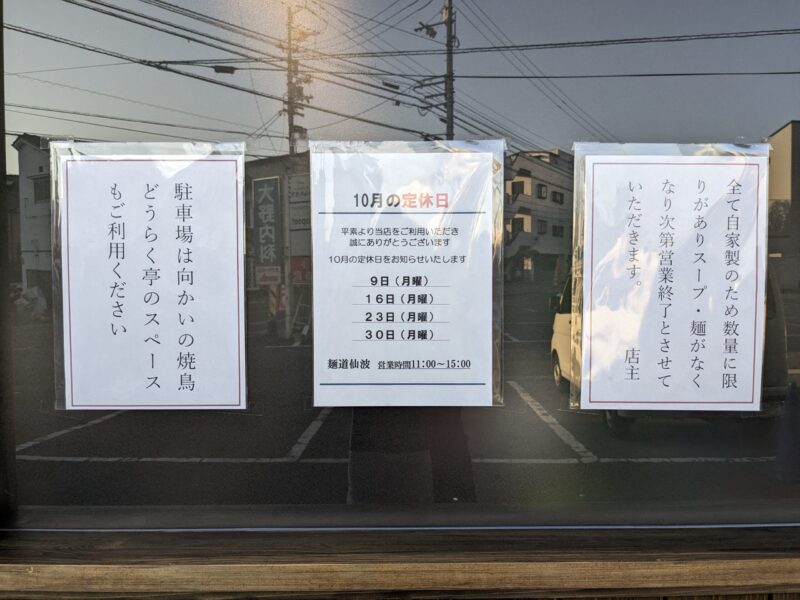 駐車場は向かいの焼鳥
どうらく亭のスペース
もご利用ください
10月の定休日
平素より当店をご利用いただき
誠にありがとうございます
10月の定休日をお知らせいたします
9日（月曜）
16日（月曜）
23日（月曜）
30日（月曜）
麺道仙波 営業時間11:00〜15:00
全て自家製のため数量に限
りがありスープ・麺がなく
なり次第営業終了とさせて
いただきます。 店主
大野内科